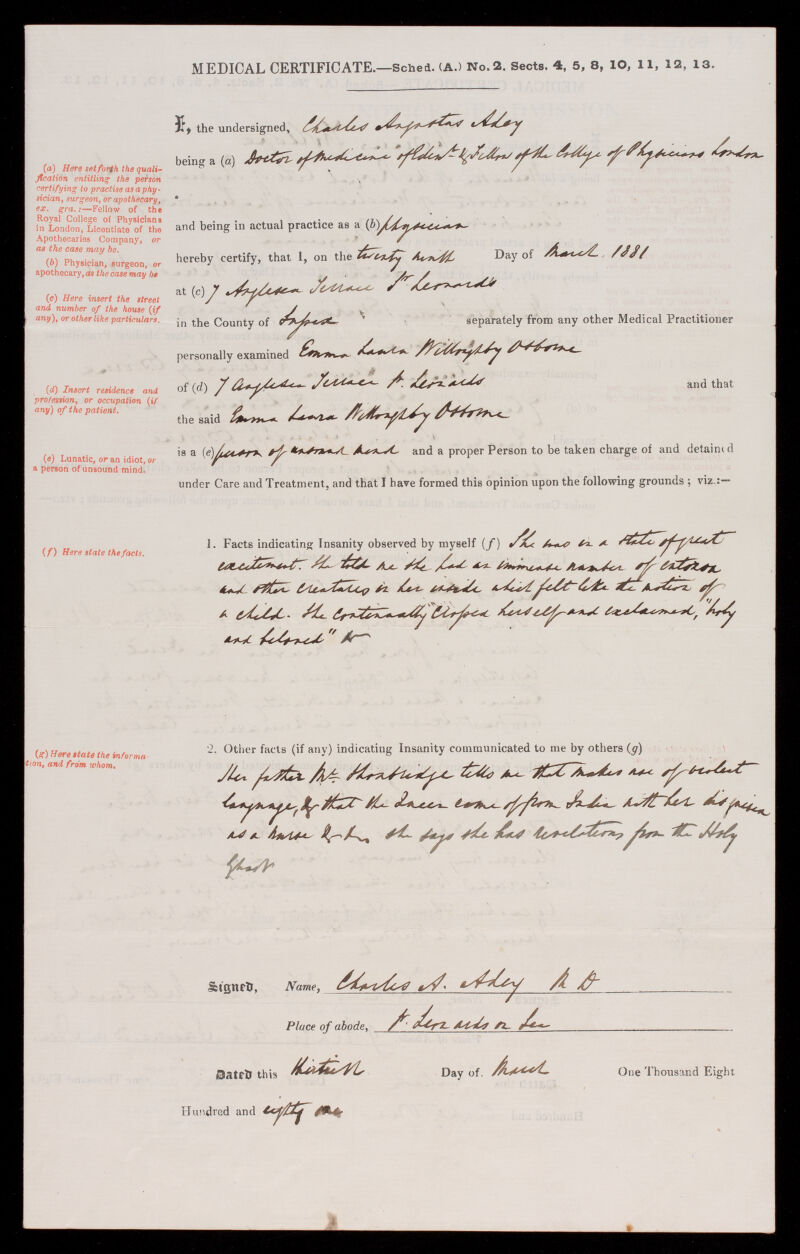 MEDICAL CERTIFICATE.—Sched. (A.) No. 2. Sects. 4, 5, 8, 10, 11, 12, 13.
I, the undersigned, Charles Augustus Adey
being a (a) Doctor of Medicine of Edinr & Fellow of the College of Physicians London
(a) Here set forth the quali-
fication entitling the person
certifying to practise as a phy-
sician, surgeon, or apothecary,
ex. gra.:—Fellow of the
Royal College of Physicians
in London, Licentiate of the
Apothecaries Company, or
as the case may be.
and being in actual practice as a (b) physician
(b) Physician, surgeon, or
apothecary, as the case may be
hereby certify, that I, on the twenty ninth Day of March 1881
at (c) 7 Anglesea Terrace St Leonards
(c) Here insert the street
and number of the house (if
any), or other like particulars.
in the County of Sussex separately from any other Medical Practitioner
personally examined Emma Laura Willoughby Osborne
of (d) 7 Anglesea Terrace St. Leonards and that
(d) Insert residence and
profession, or occupation (if
any) of the patient.
the said Emma Laura Willoughby Osborne
is a (e) person of unsound mind and a proper Person to be taken charge of and detained
(e) Lunatic, or an idiot, or
a person of unsound mind.
under Care and Treatment, and that I have formed this opinion upon the following grounds; viz.:—
1. Facts indicating Insanity observed by myself (f) She was in a state of great
(f) Here state the facts.
excitement. She told me she had an immense number of
and other creatures in her inside which felt like the motion of
a child. She continually crossed herself and exclaimed, "holy
and beloved" &c
2. Other facts (if any) indicating Insanity communicated to me by others (g)
(g) Here state the informa-
tion, and from whom.
Her father Mr. tells me that makes use of violent
language, & that the Queen came off from India with her disguised
as a nurse & she says she has revelations from the Holy
Ghost
Signed, Name, Charles A. Adey M D
Place of abode, St. Leonards on Sea
Dated this thirtieth Day of March One Thousand Eight
Hundred and eighty one